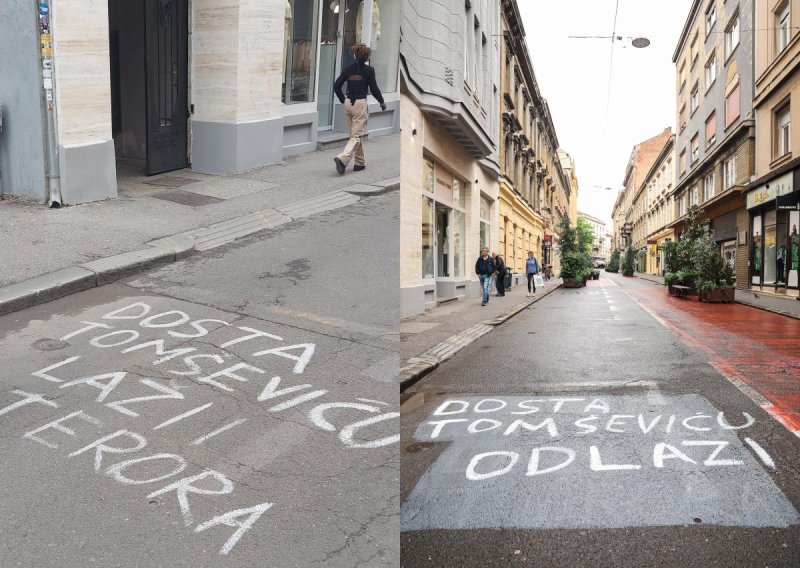 DOSTA
TOMŠEVIĆU
LAZI I
TERORA
DOSTA
TOMŠEVIĆU
ODLAZI